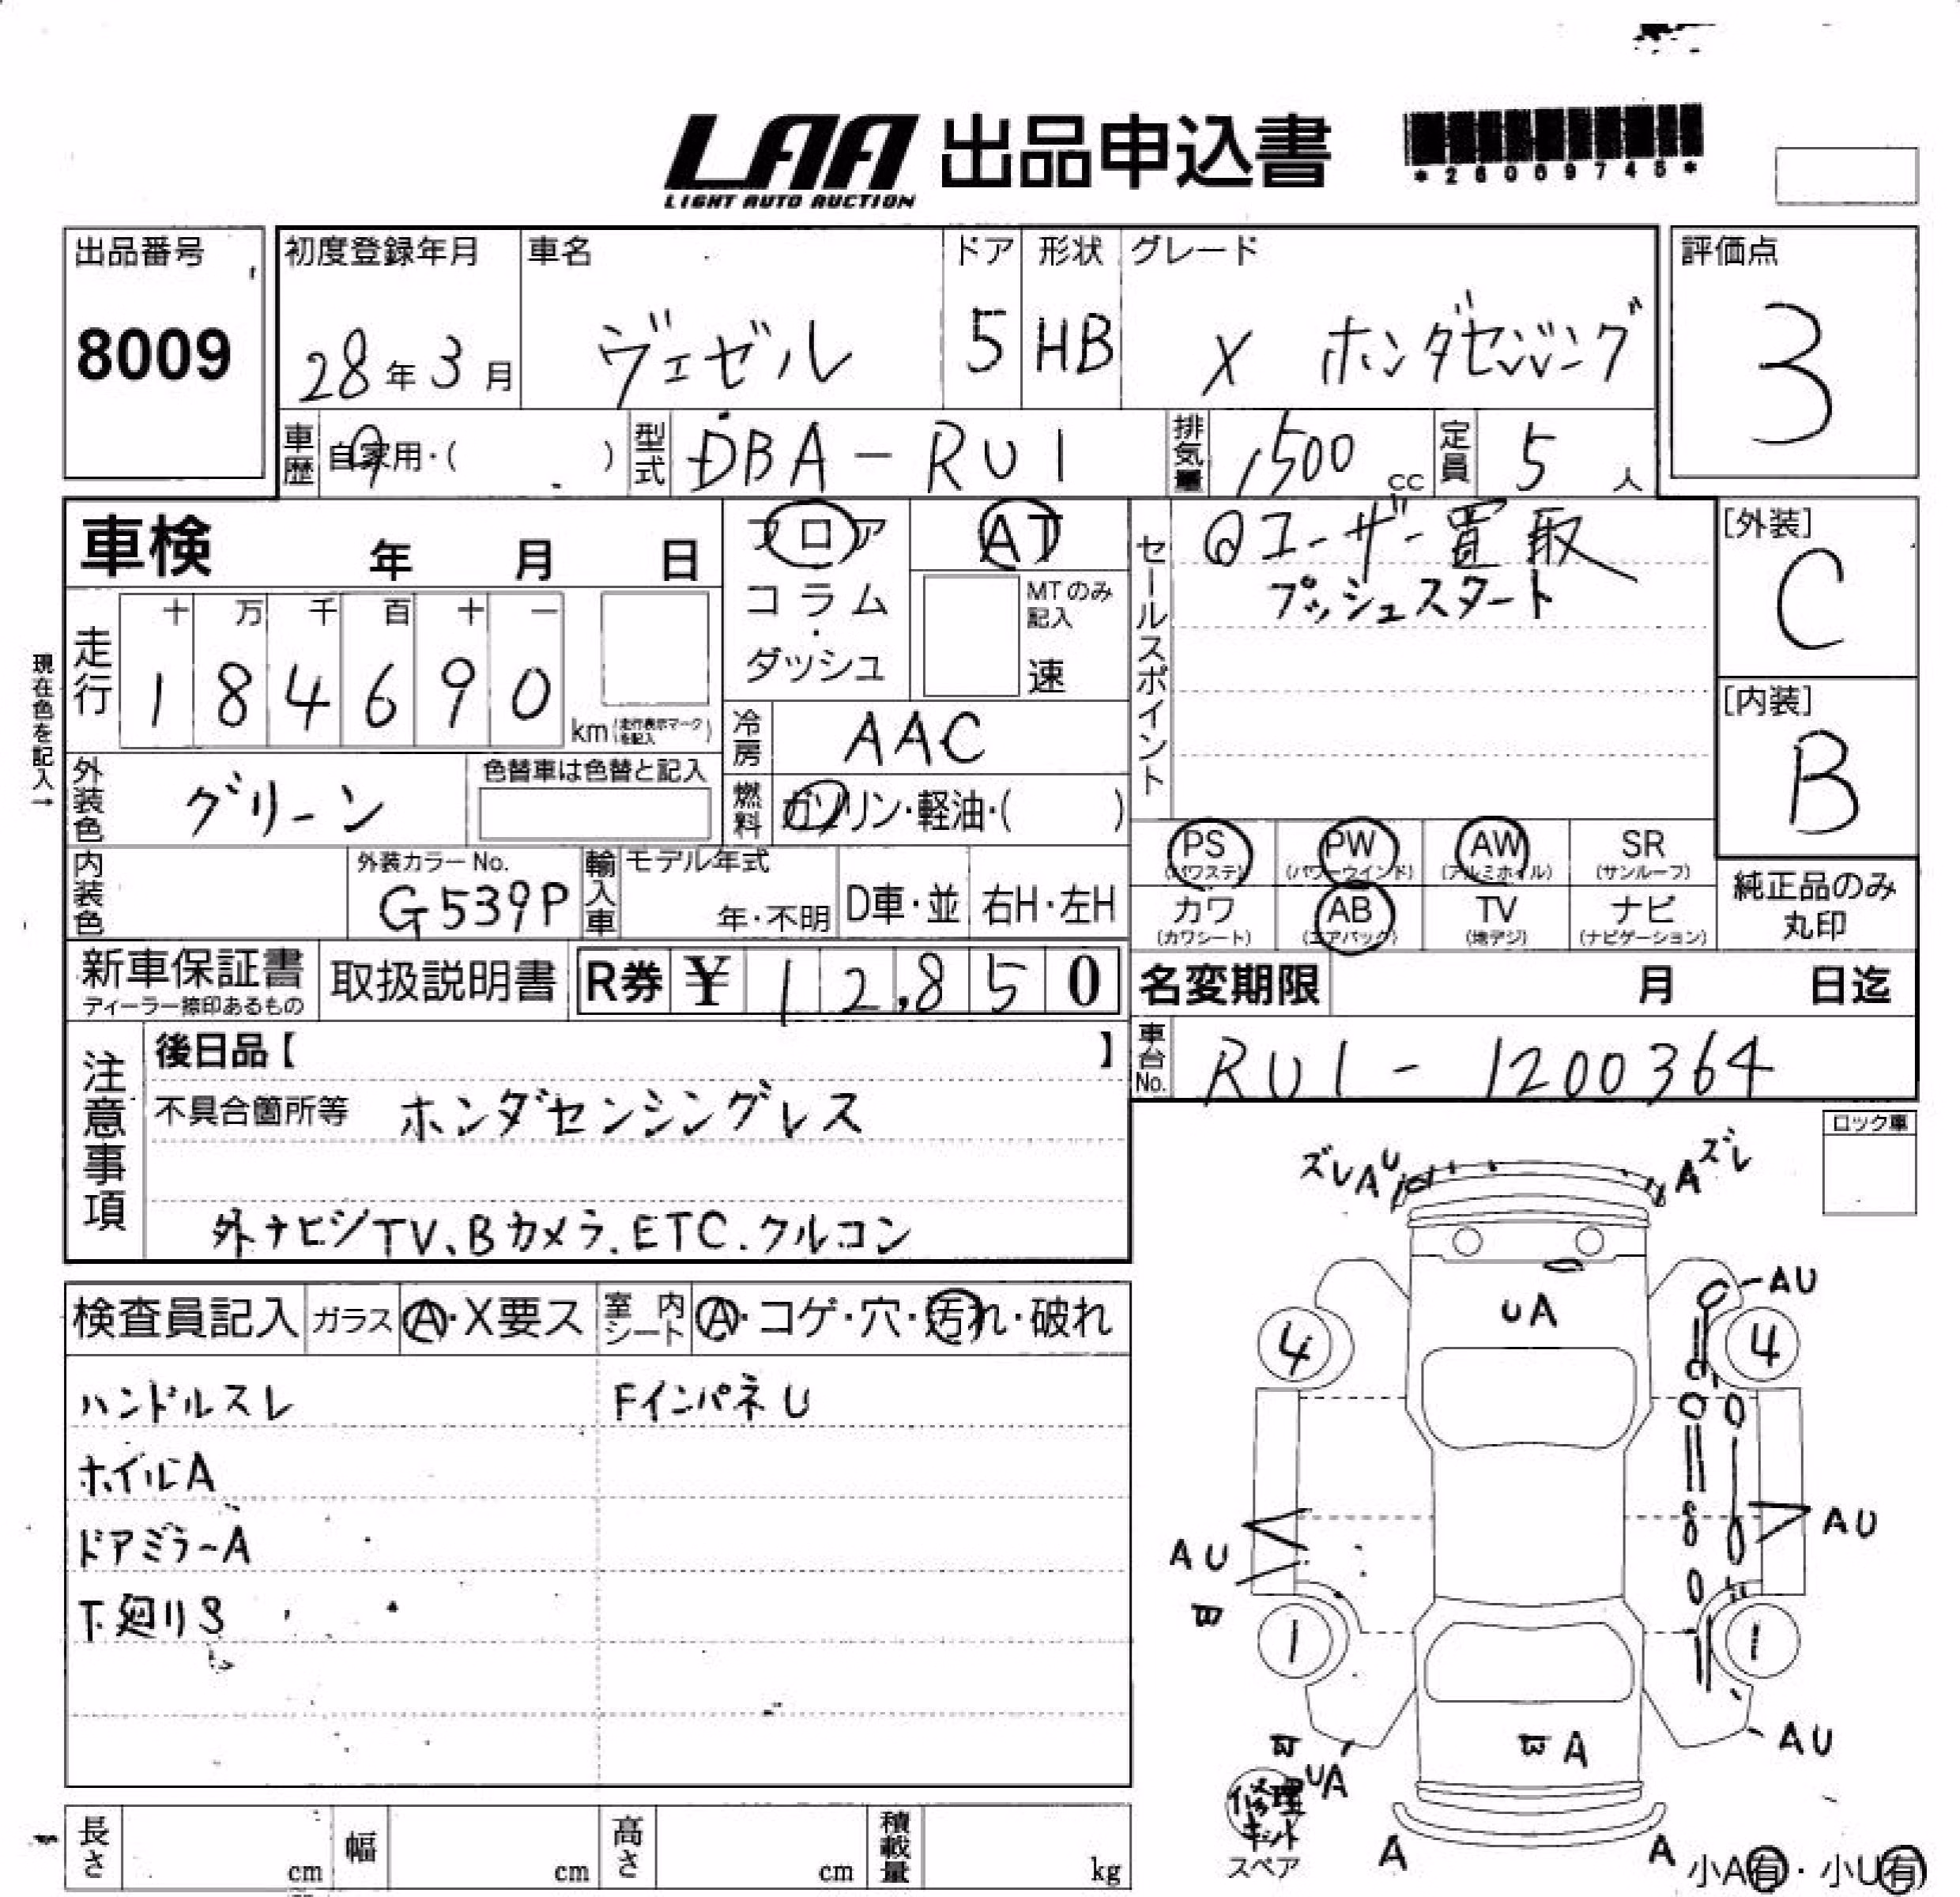 LAA 出品申込書
LIGHT AUTO AUCTION
*26069745*
出品番号 初度登録年月 車名 ドア 形状 グレード 評価点
8009 28年3月 ヴェゼル 5 HB X ホンダセンシング 3
車歴 自家用・( ) 型式 DBA-RU1 排気量 1,500 cc 定員 5 人
車検 年 月 日
フロア AT
コラム・ダッシュ
MTのみ記入
速
セールスポイント
ユーザー買取
プッシュスタート
[外装]
C
[内装]
B
現在色を記入→
走行 十 万 千 百 十 一
1 8 4 6 9 0 km (走行表示マークを記入)
冷房 AAC
外装色 グリーン 色替車は色替と記入
燃料 ガソリン・軽油・( )
PS (パワステ) PW (パワーウインド) AW (アルミホイル) SR (サンルーフ)
カワ (カワシート) AB (エアバック) TV (地デジ) ナビ (ナビゲーション)
純正品のみ
丸印
内装色 外装カラーNo. G539P 輸入車 モデル年式 年・不明 D車・並 右H・左H
新車保証書 取扱説明書 R券 ¥ 12,850
ディーラー捺印あるもの
名変期限 月 日迄
車台No. RU1-1200364
注意事項
後日品【 】
不具合箇所等 ホンダセンシングレス
外ナビジTV、Bカメラ.ETC.クルコン
ロック車
検査員記入 ガラス A・X要ス 室内シート A・コゲ・穴・汚れ・破れ
ハンドルスレ Fインパネ U
ホイルA
ドアミラーA
下廻りS
ズレAU Aズレ
UA AU
4 4
AU AU
B
1 1
AU
UA A
修理キット
スペア
A A
小A有・小U有
長さ cm 幅 cm 高さ cm 積載量 kg